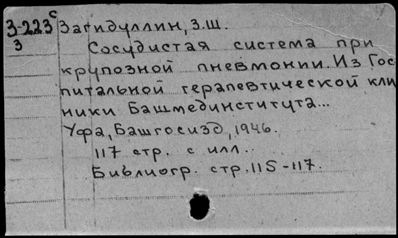 З-223с Загидуллин, З.Ш.
3 Сосудистая система при
крупозной пневмонии. Из Гос
питальной терапевтической кли
ники Башмединститута...
Уфа, Башгосизд, 1946.
117 стр. с илл..
Библиогр. стр. 115-117.